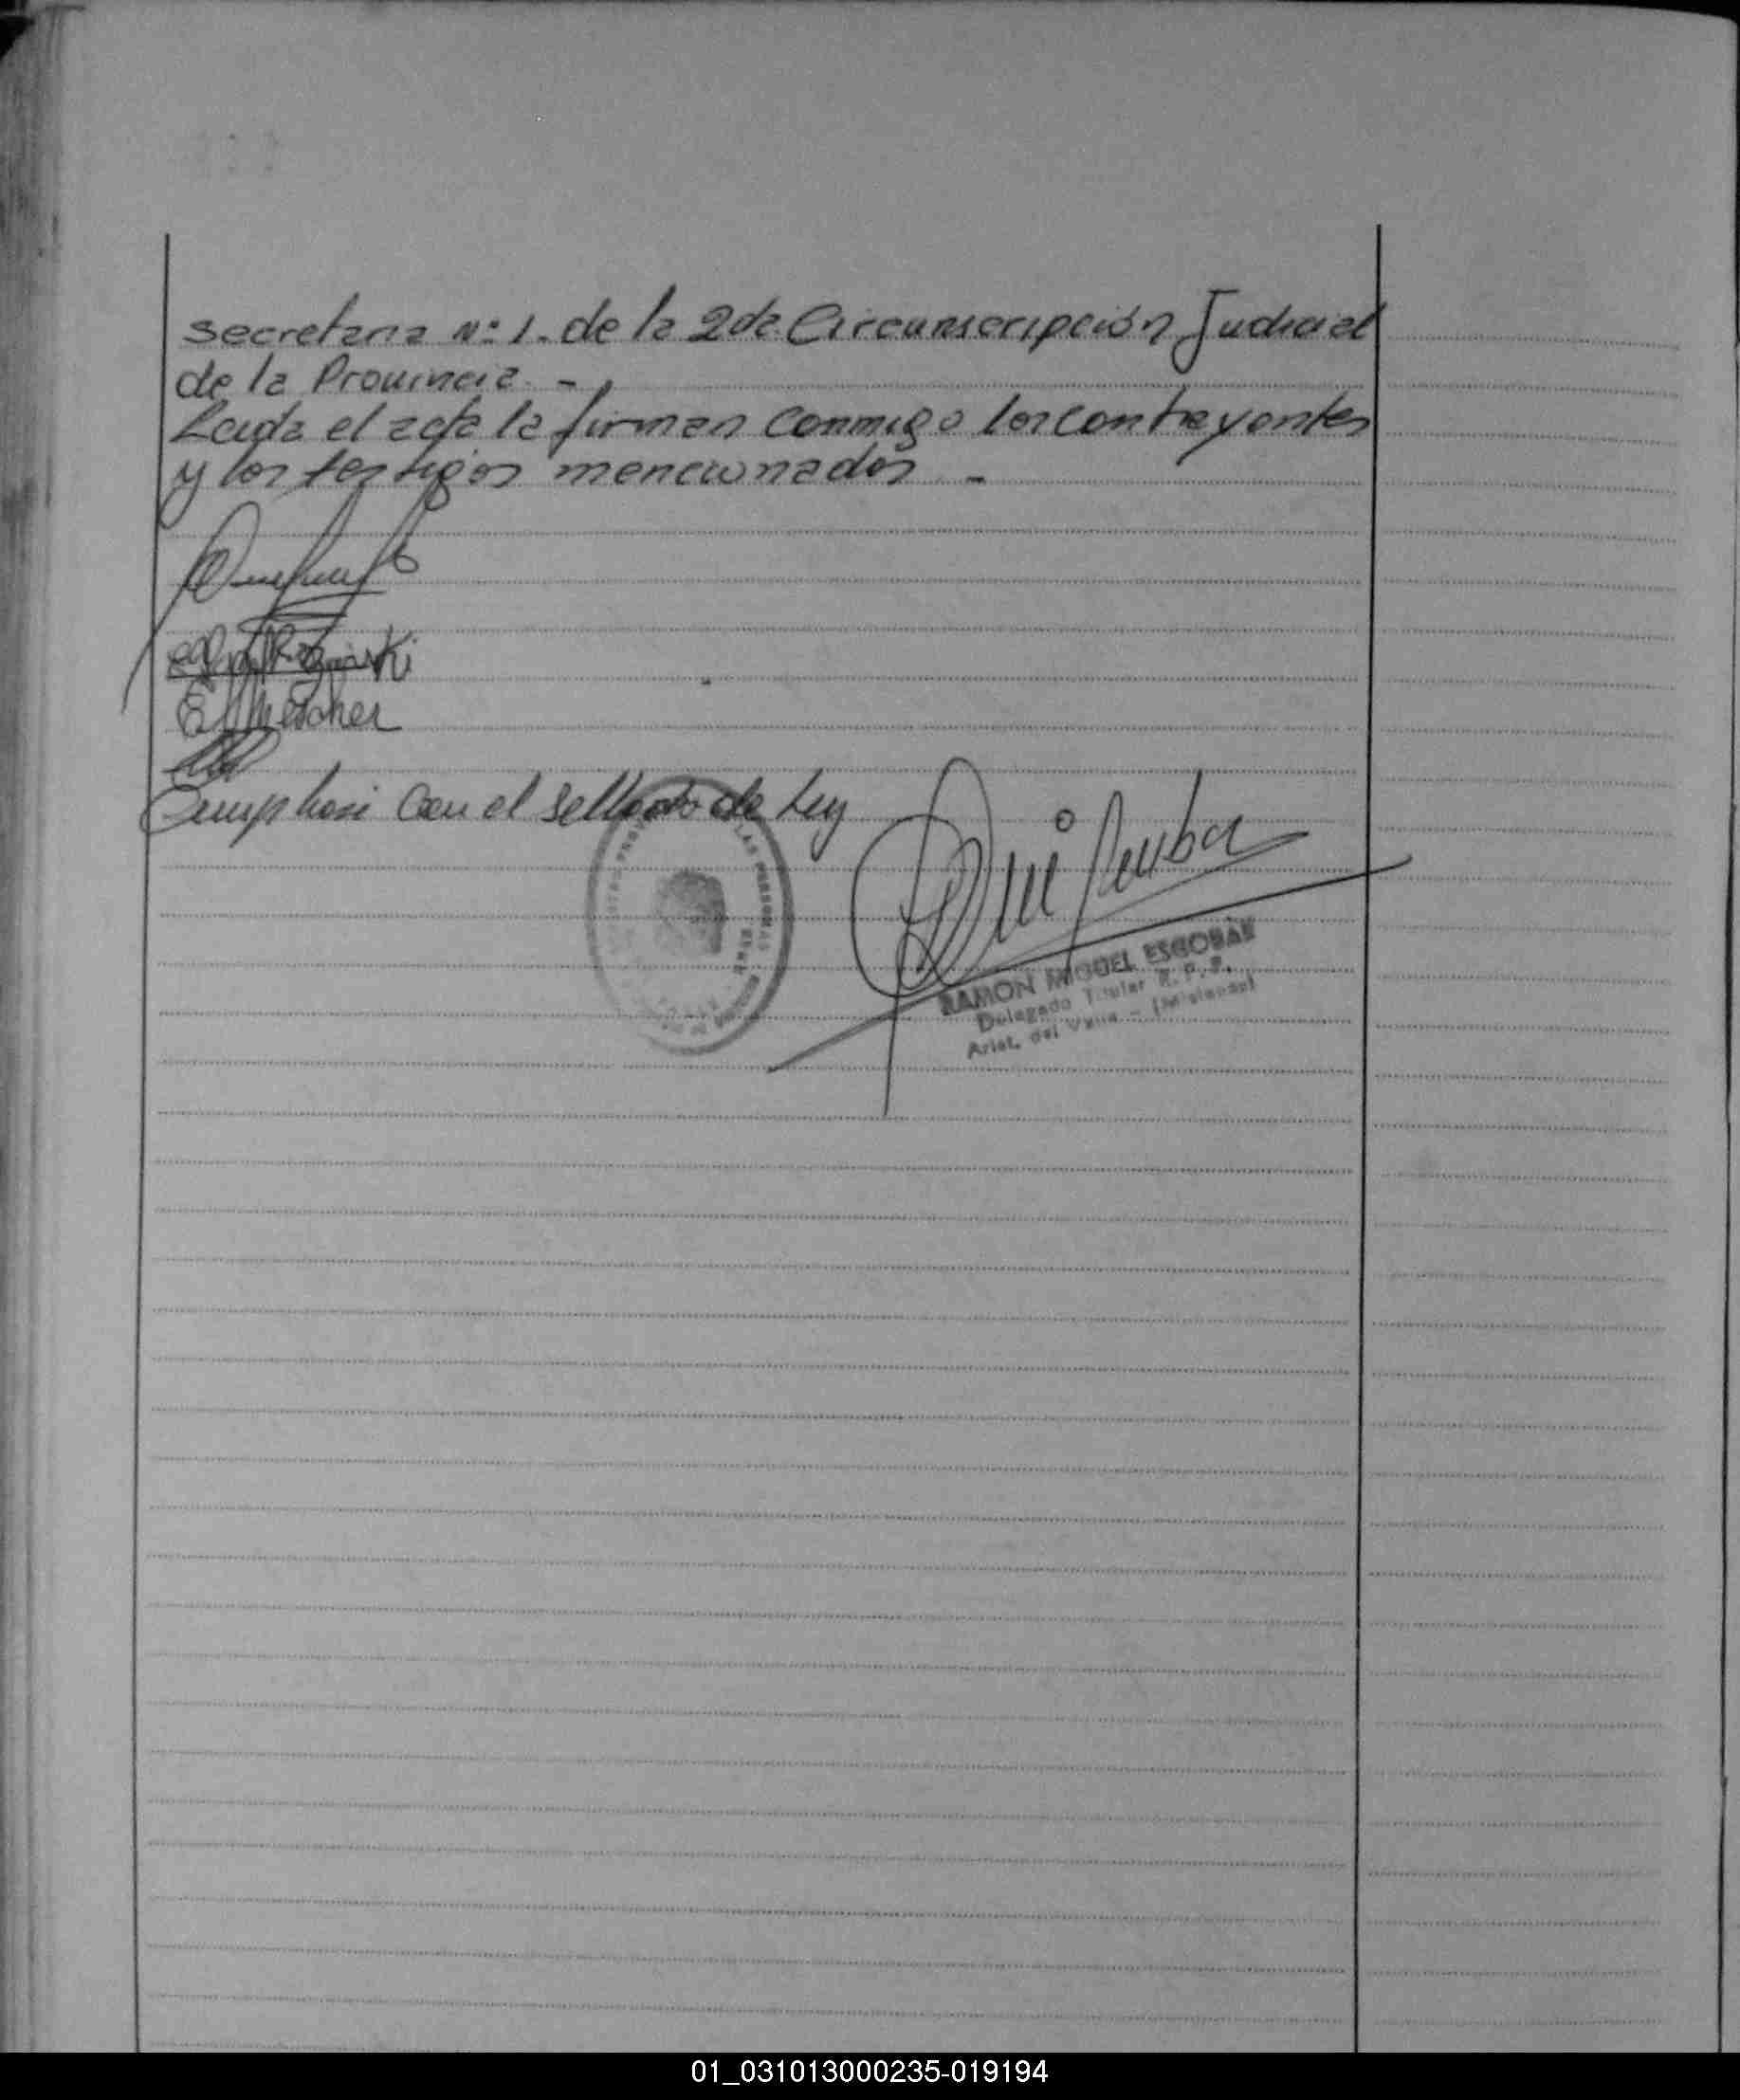 secretaria Nº 1. de la 2da. Circunscripción Judicial
de la Provincia. -
Leida el acta la firman conmigo los contrayentes
y los testigos mencionados. -
con el sellado de Ley
RAMON MIGUEL ESCOBAR
Delegado Titular R. P. P.
Arist. del Valle - (Misiones)
LAS PERSONAS
01_031013000235-019194